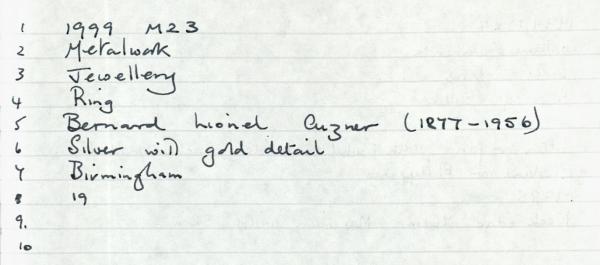 1 1999 M23
2 Metalwork
3 Jewellery
4 Ring
5 Bernard Lionel Cuzner (1877-1956)
6 Silver with gold detail
7 Birmingham
8 19
9.
10